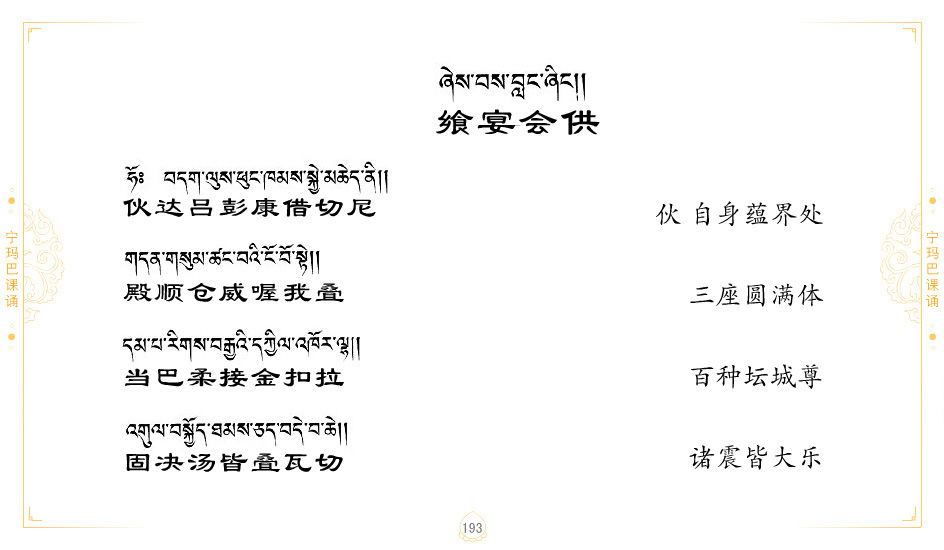 ཞེས་བས་བླང་ཞིང།།
飨宴会供
ཧོཿ བདག་ལུས་ཕུང་ཁམས་སྐྱེ་མཆེད་ནི།།
伙达吕彭康借切尼
伙 自身蕴界处
གདན་གསུམ་ཚང་བའི་ངོ་བོ་སྟེ།།
殿顺仓威喔我叠
三座圆满体
དམ་པ་རིགས་བརྒྱའི་དཀྱིལ་འཁོར་ལྷ།།
当巴柔接金扣拉
百种坛城尊
འགུལ་བསྐྱོད་ཐམས་ཅད་བདེ་བ་ཆེ།།
固决汤皆叠瓦切
诸震皆大乐
宁玛巴课诵
宁玛巴课诵
193